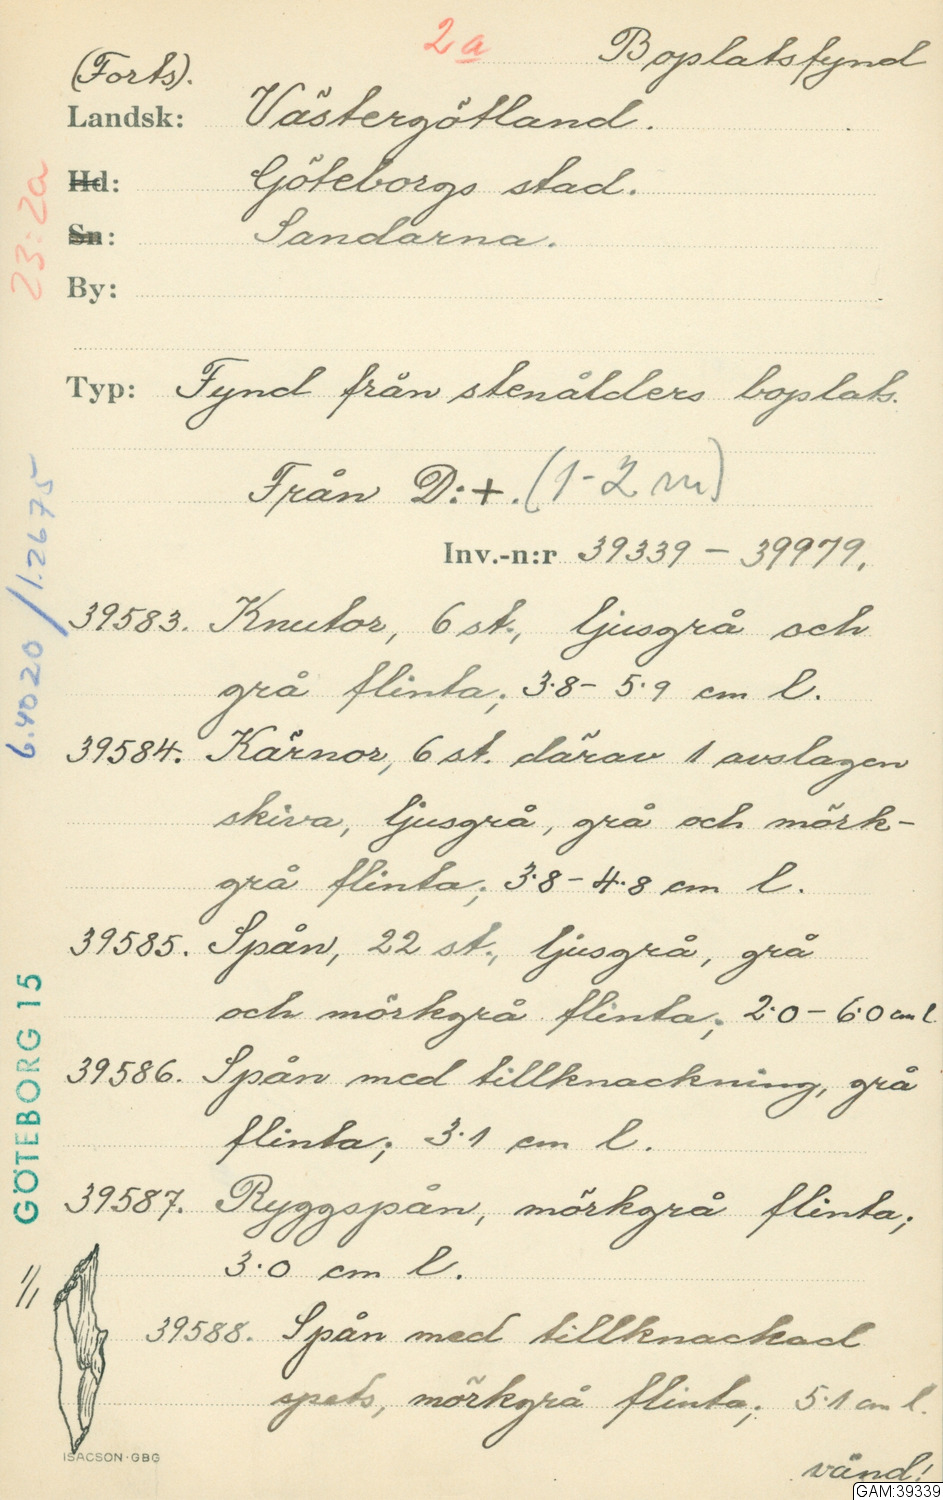 2a
Boplatsfynd
(Forts).
Landsk: Västergötland.
Hd: Göteborgs stad.
Sn: Sandarna.
By:
Typ: Fynd från stenålders boplats.
Från D:+. (1-2 m)
Inv.-n:r 39339 – 39979.
39583. Knutor, 6 st., ljusgrå och
grå flinta; 3.8 – 5.9 cm l.
39584. Kärnor, 6 st. därav 1 avslagen
skiva, ljusgrå, grå och mörk-
grå flinta; 3.8 – 4.8 cm l.
39585. Spån, 22 st., ljusgrå, grå
och mörkgrå flinta; 2.0 – 6.0 cm l.
39586. Spån med tillknackning, grå
flinta; 3.1 cm l.
39587. Ryggspån, mörkgrå flinta;
3.0 cm l.
39588. Spån med tillknackad
spets, mörkgrå flinta; 5.1 cm l.
vänd!
23:2a
6.4020/1.2675
GÖTEBORG 15
1/1
ISACSON·GBG
GAM:39339